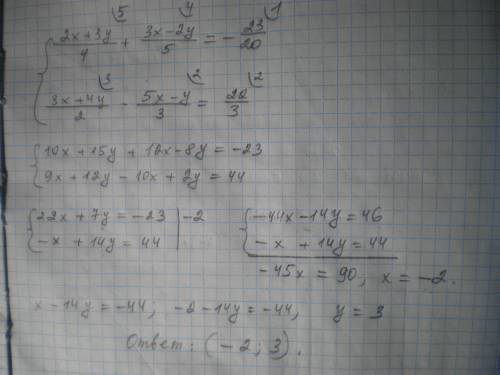 { (2x+3y)/4 ⁵⁾ + (3x-2y)/5 ⁴⁾ = - 23/20 ¹⁾
{ (3x+4y)/2 ³⁾ - (5x-y)/3 ²⁾ = 22/3 ²⁾
{ 10x+15y+12x-8y=-23
{ 9x+12y-10x+2y=44
{ 22x+7y=-23 |-2 { -44x-14y=46
{ -x+14y=44 | { -x+14y=44
-45x=90, x=-2.
x-14y=-44; -2-14y=-44, y=3
Ответ: (-2; 3).